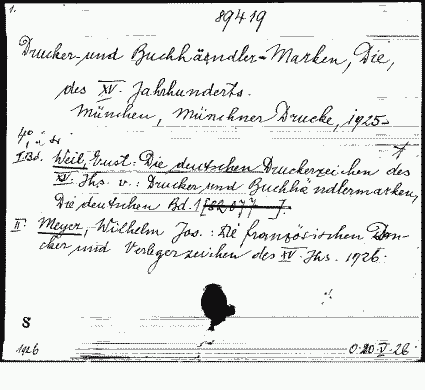 1.
89419
Drucker- und Buchhändler-Marken, Die,
des XV. Jahrhunderts.
München, Münchner Drucke, 1925-
4°
I. Bd. Weil, Ernst: Die deutschen Druckerzeichen des
XV. Jhs. v.: Drucker und Buchhändlermarken,
Die deutschen Bd. 1
II. Meyer, Wilhelm Jos.: Die französischen Dru-
cker und Verlegerzeichen des XV Jhs. 1926.
S
1926
0.20.V.26.